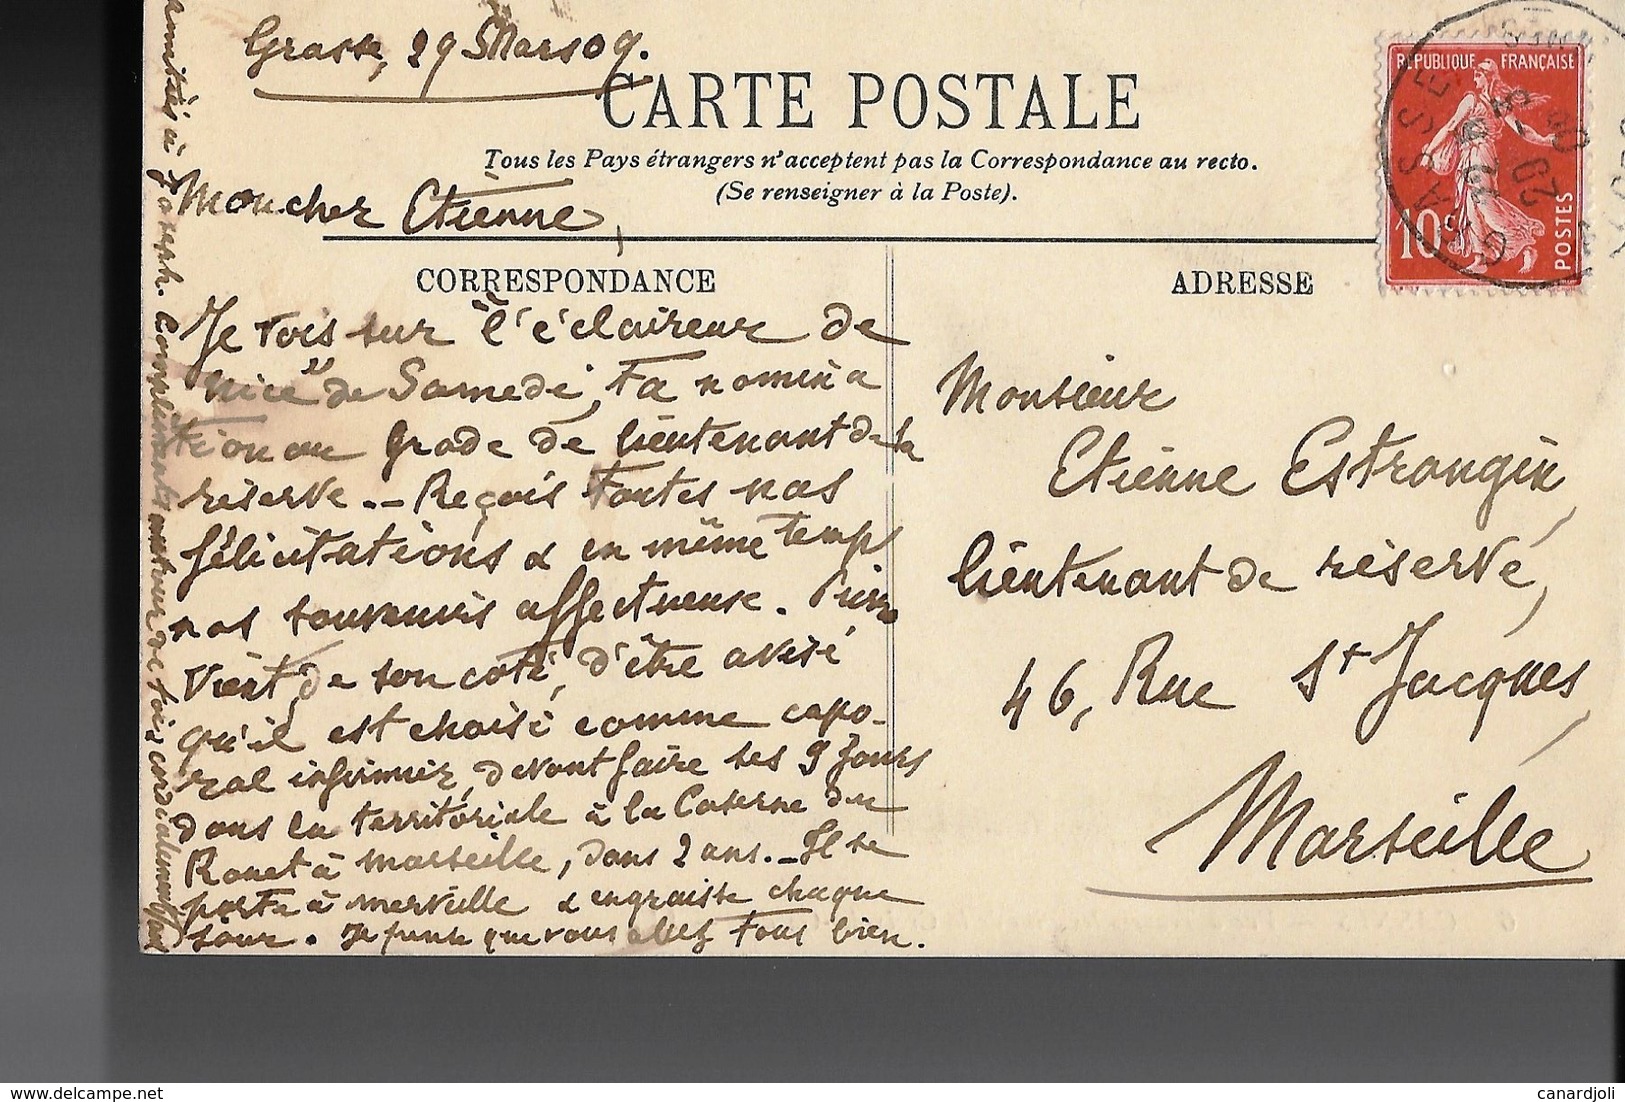 Grasse, 29 Mars 09.
CARTE POSTALE
Tous les Pays étrangers n'acceptent pas la Correspondance au recto.
(Se renseigner à la Poste).
Mon cher Etienne,
CORRESPONDANCE
Je vois sur "l'éclaireur de
Nice" de Samedi, ta nomina
tion au grade de lieutenant de la
réserve. — Reçois toutes nos
félicitations & en même temps
nos souvenirs affectueux. Pierre
vient, de son coté, d'être avisé
qu'il est choisi comme capo-
ral infirmier, devant faire ses 9 jours
dans la territoriale à la Caserne du
Rouet à Marseille, dans 2 ans. — Il se
porte à merveille & engraisse chaque
jour. Je pense que vous allez tous bien.
amitiés à Joseph. Compliments autour de toi & cordialement
ADRESSE
Monsieur
Etienne Estrangin,
lieutenant de réserve,
46, Rue St Jacques,
Marseille
REPUBLIQUE FRANÇAISE
10c
POSTES
GRASSE
canardjoli